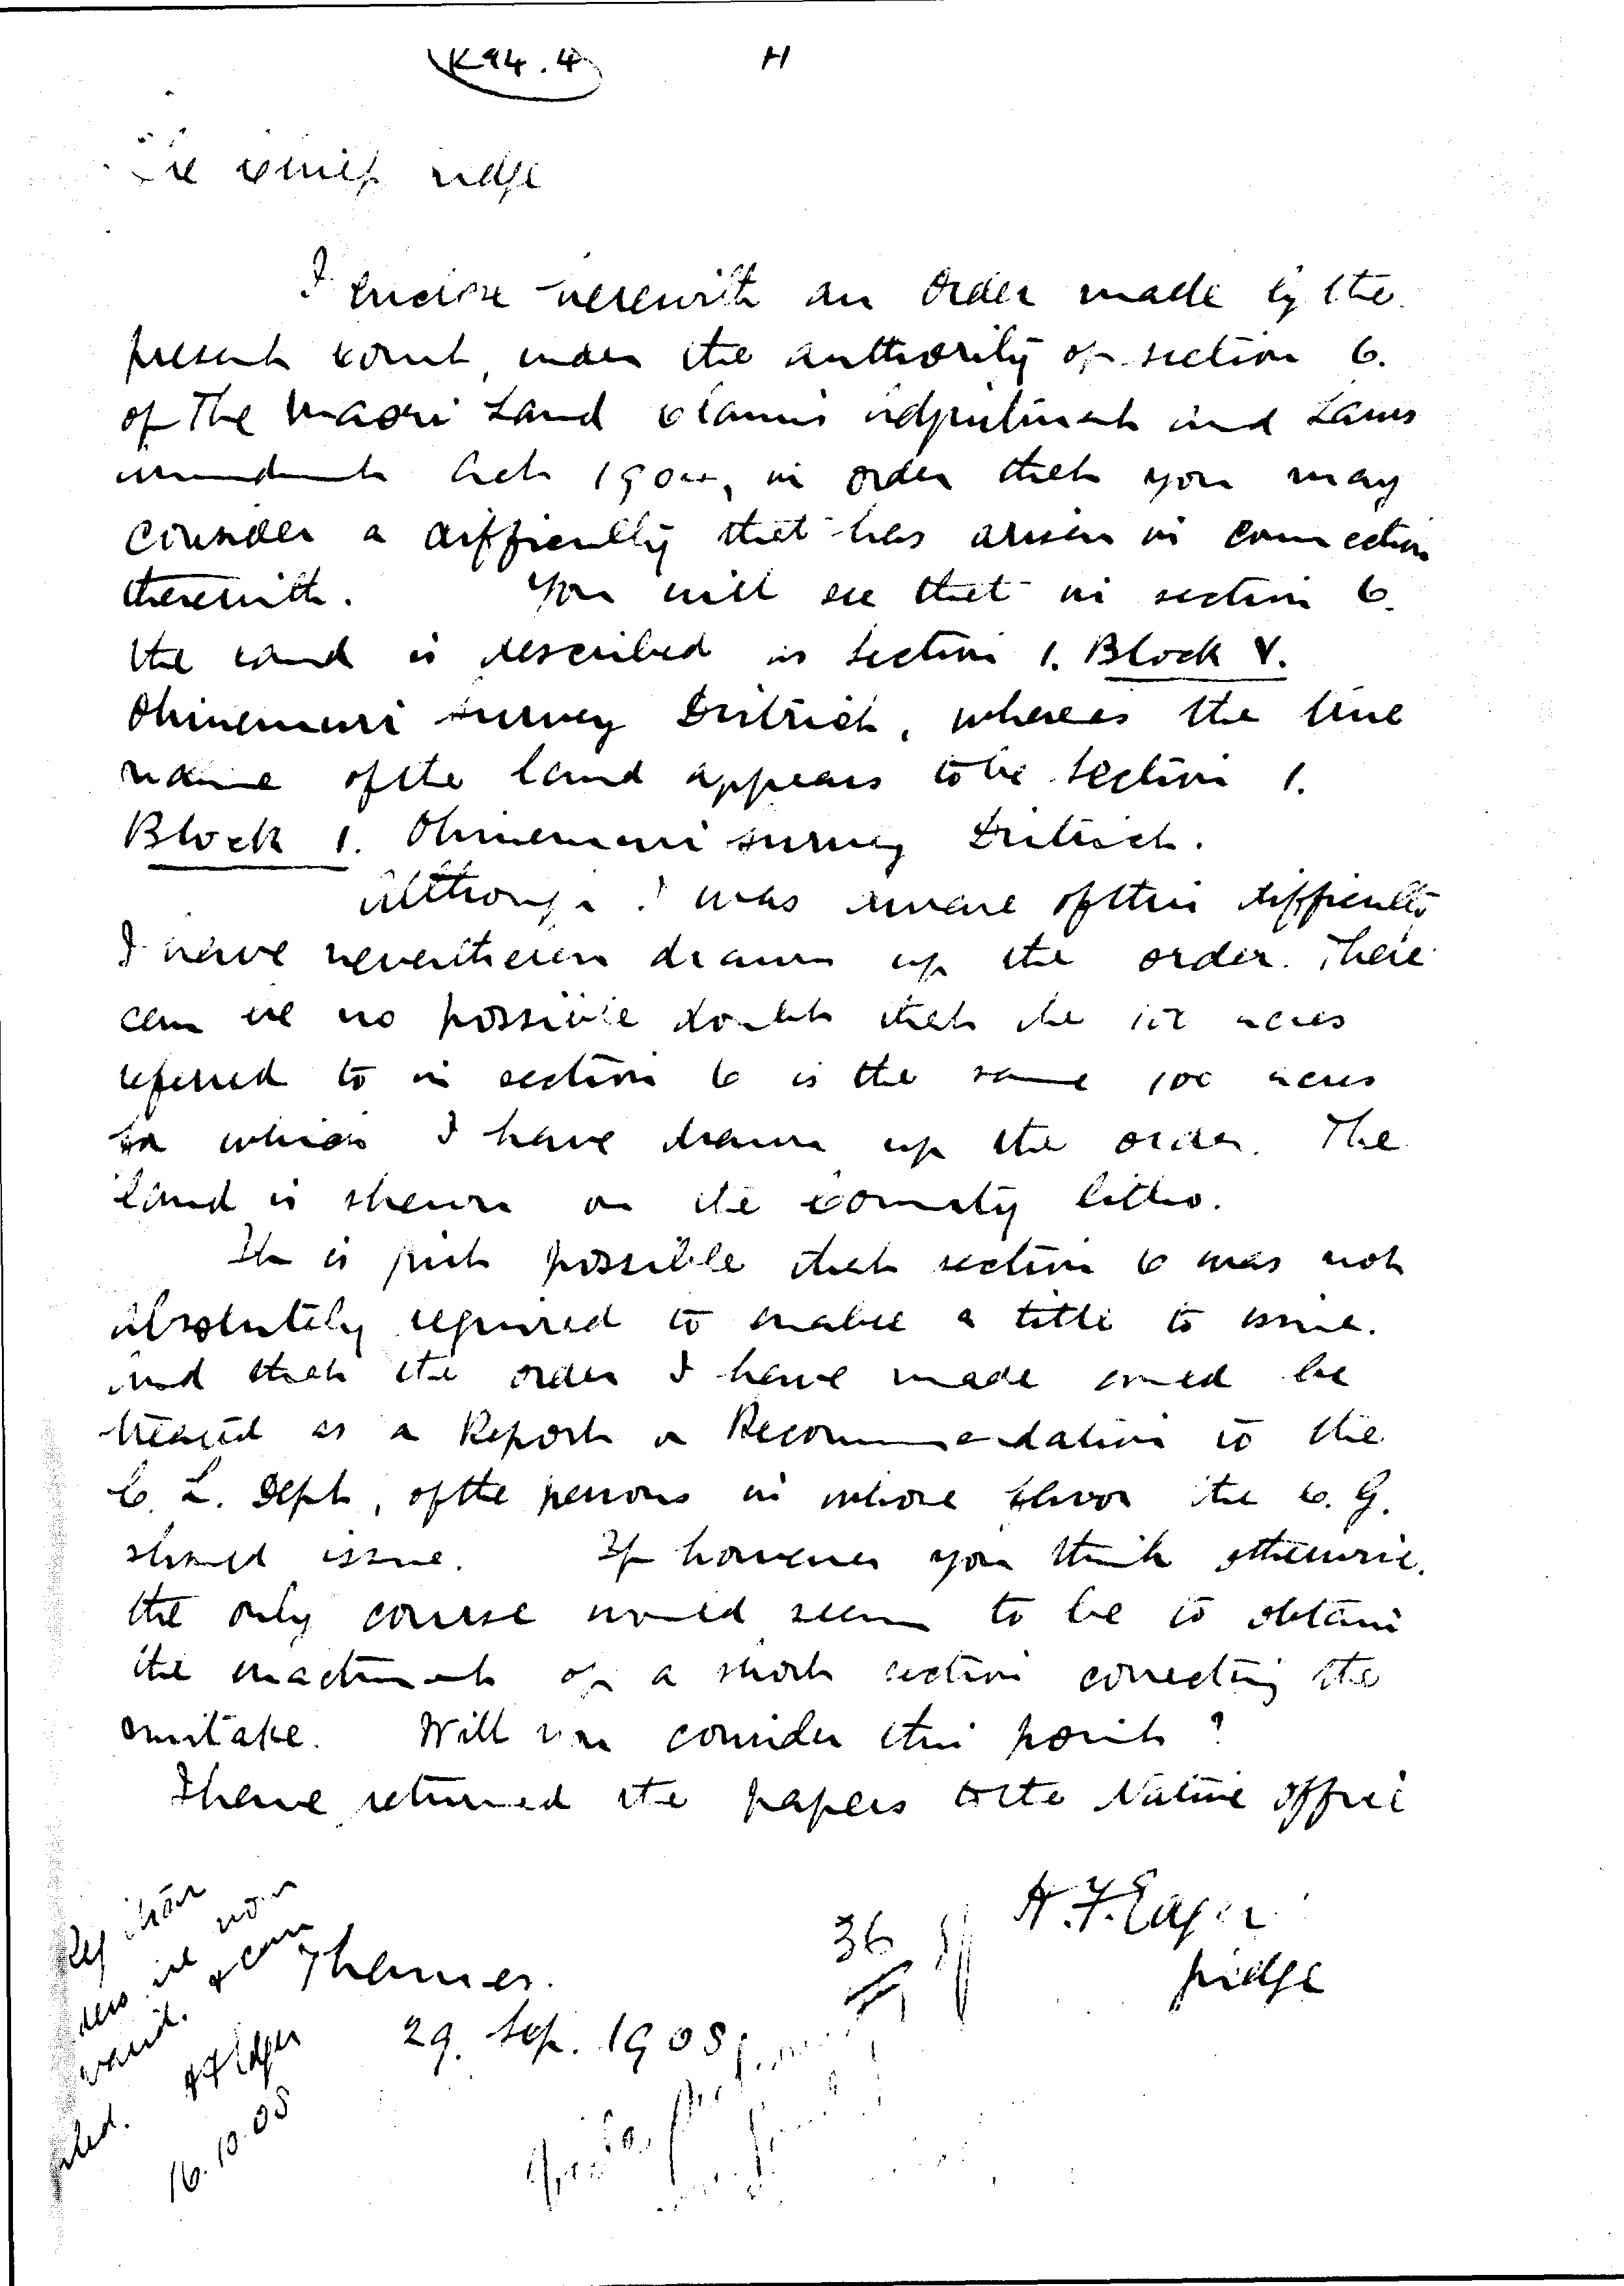 K94.4 H
The Chief Judge
I enclose herewith an order made by the
present court, under the authority of section 6.
of The Maori Land Claims Adjustment and Laws
Amendment Act 1904, in order that you may
consider a difficulty that has arisen in connection
therewith. You will see that in section 6.
the land is described as Section 1. Block V.
Ohinemuri Survey District, whereas the true
name of the land appears to be Section 1.
Block 1. Ohinemuri Survey District.
Although I was aware of this difficulty
I have nevertheless drawn up the order. There
can be no possible doubt that the 100 acres
referred to in section 6 is the same 100 acres
for which I have drawn up the order. The
land is shewn on the county litho.
It is just possible that section 6 was not
absolutely required to enable a title to issue.
And that the order I have made could be
treated as a Report or Recommendation to the
C. L. Dept, of the persons in whose favor the C. G.
should issue. If however you think otherwise.
the only course would seem to be to obtain
the enactment of a short section correcting the
mistake. Will you consider this point?
I have returned the papers to the Native Office
H. F. Edger
Judge
36
Thames.
29. Sep. 1905
now
H F Edger
16.10.05